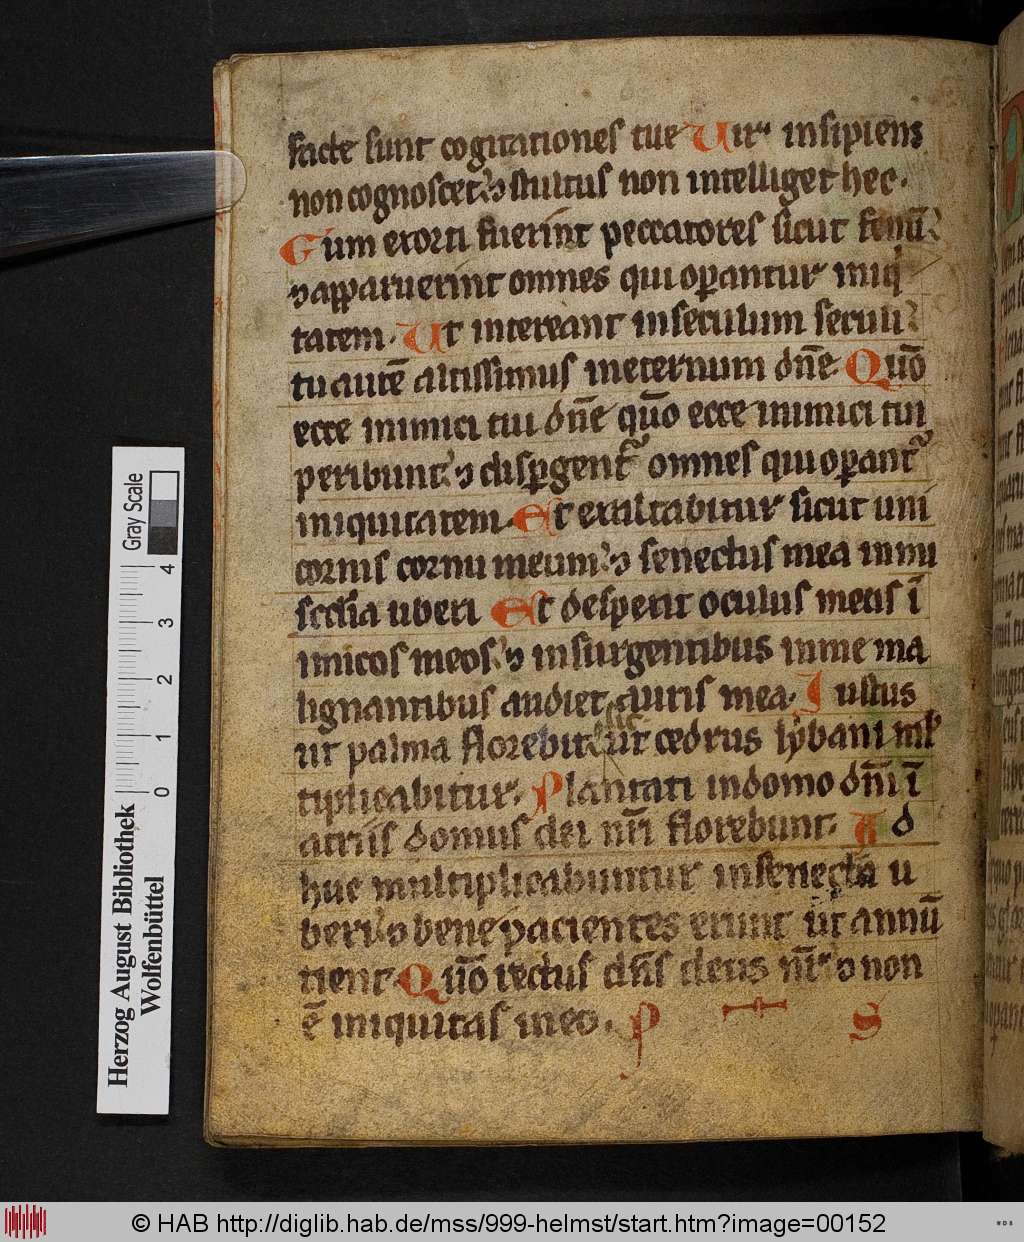 facte sunt cogitationes tue Uir insipiens
non cognoscet ⁊ stultus non intelliget hec.
Cum exorti fuerint peccatores sicut fenū
⁊ apparuerint omnes qui oꝑantur iniq
tatem. Ut intereant inseculum seculi
tu autē altissimus ineternum dn̄e Quō
ecce inimici tui dn̄e quō ecce inimici tui
peribunt ⁊ disꝑgent᷑ omnes qui oꝑant᷑
iniquitatem. Et exaltabitur sicut uni
cornis cornu meum ⁊ senectus mea in mi
sc̄dia uberi Et despexit oculus meus ī
imicos meos ⁊ insurgentibus in me ma
lignantibus audiet auris mea. Iustus
ut palma florebit sic ut cedrus lybani ml
tiplicabitur. Plantati indomo dn̄i ī
atriis domus dei nr̄i florebunt. Ad
huc multiplicabuntur insenecta u
beri ⁊ bene pacientes erunt ut annū
tient Quō rectus dn̄s deus nr̄ ⁊ non
ē iniquitas in eo. P S
Herzog August Bibliothek
Wolfenbüttel
0 1 2 3 4
Gray Scale
© HAB http://diglib.hab.de/mss/999-helmst/start.htm?image=00152